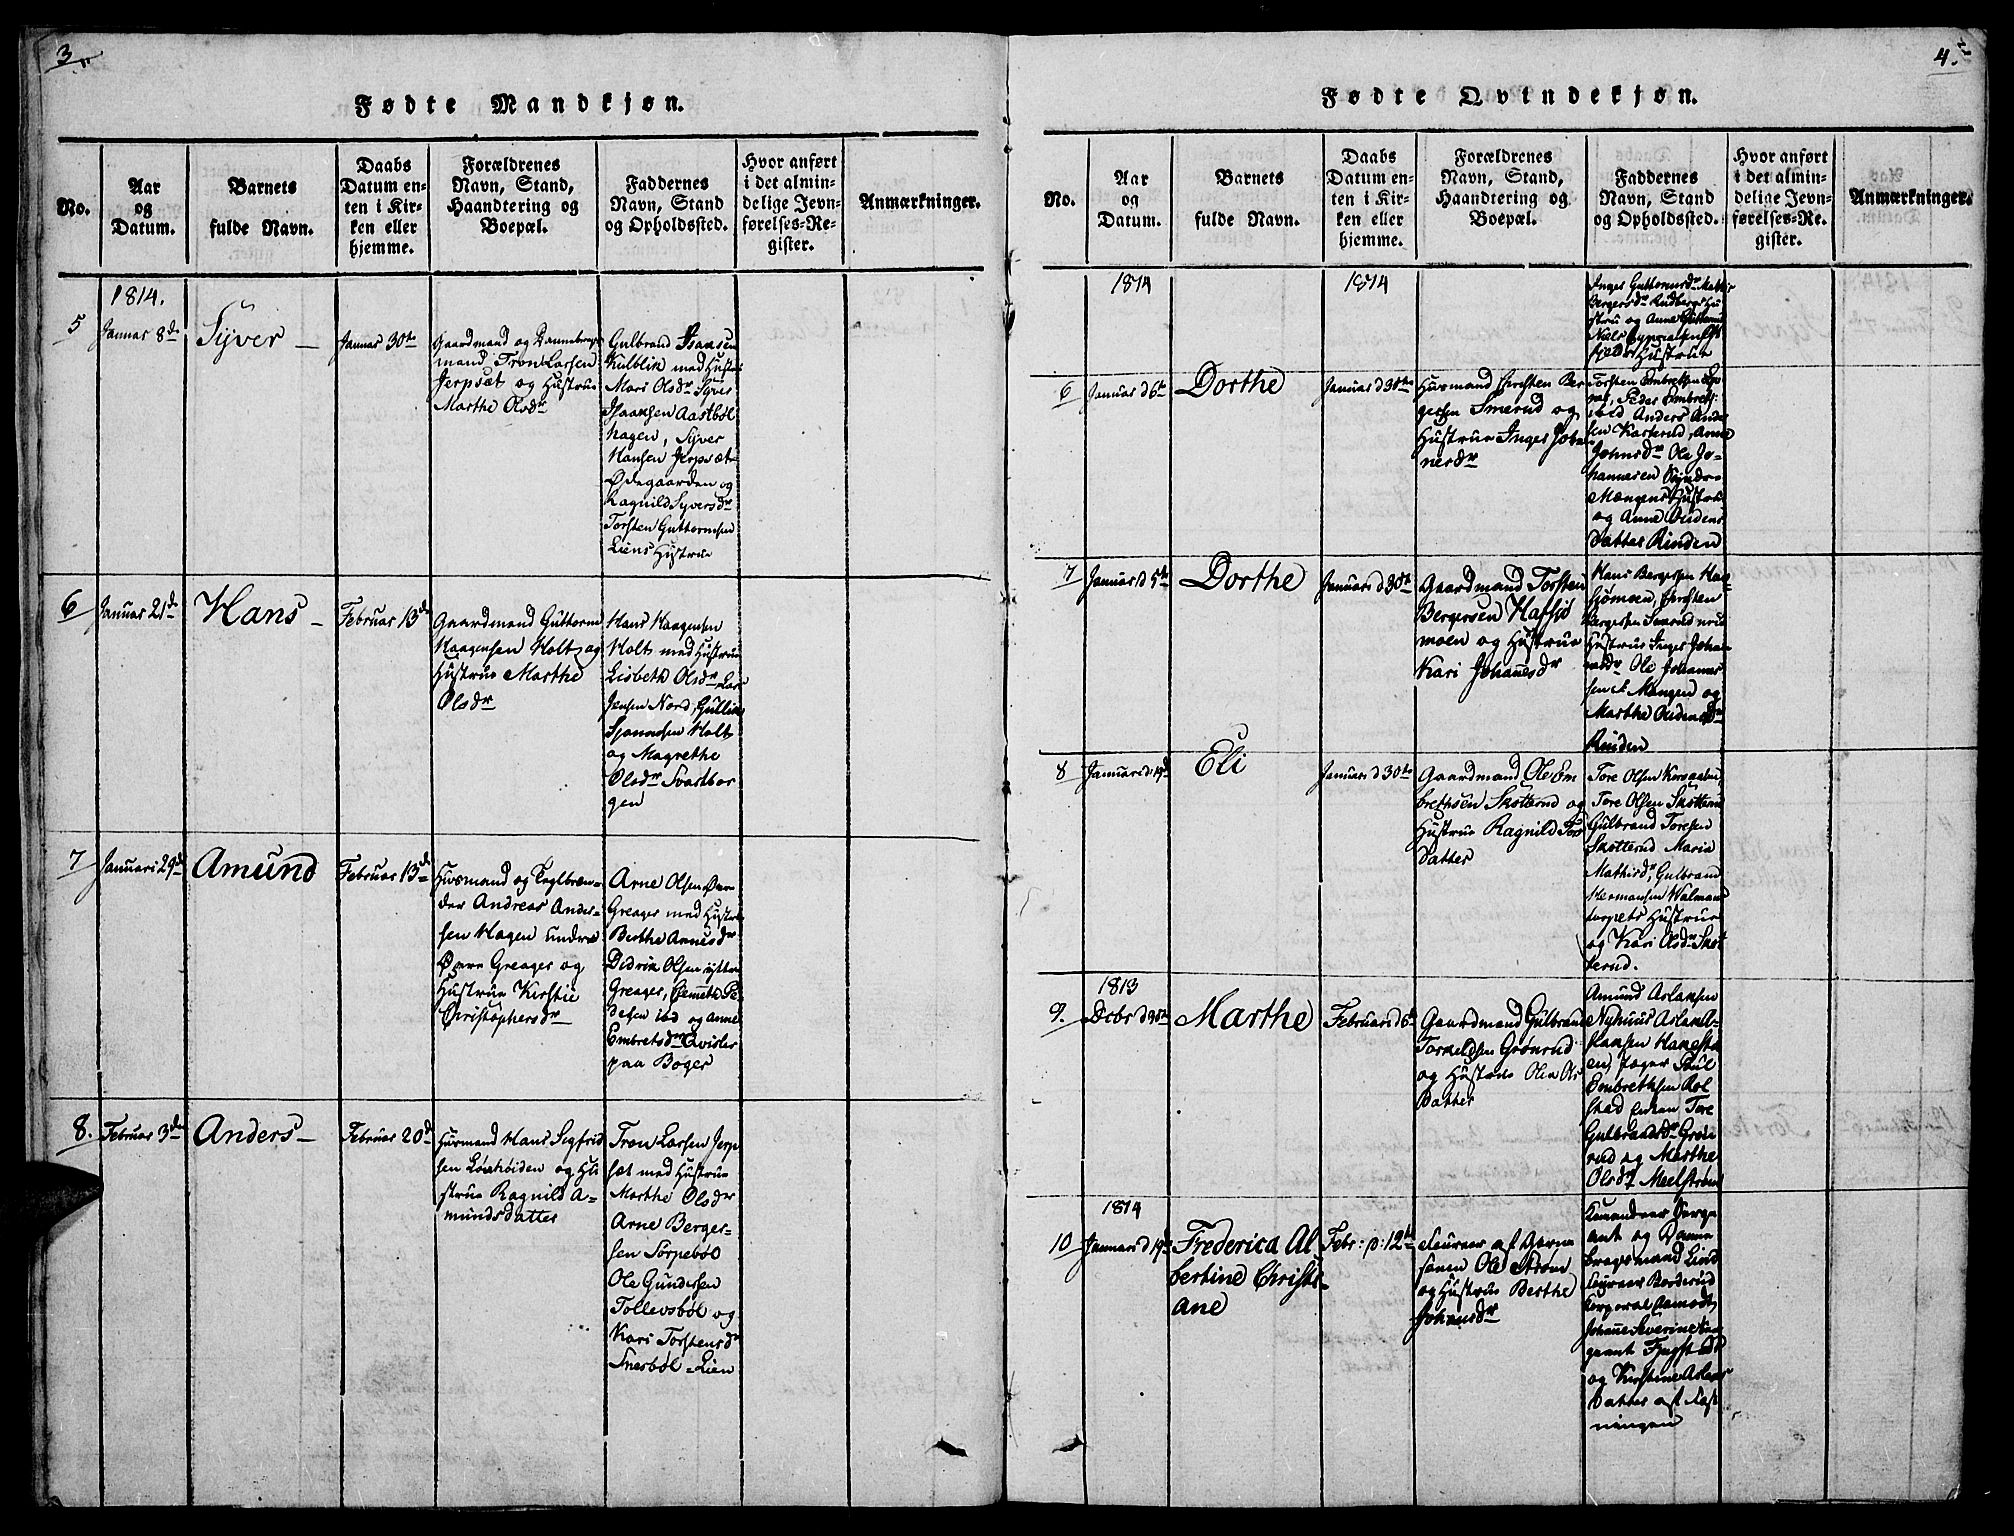 3.
Fødte Mandkjøn.
No.
Aar
og
Datum.
Barnets
fulde Navn.
Daabs
Datum en-
ten i Kir-
ken eller
hjemme.
Forældrenes
Navn, Stand,
Haandtering og
Boepæl.
Faddernes
Navn, Stand
og Opholdssted.
Hvor anført
i det almin-
delige Jevn-
førelses-Re-
gister.
Anmærkninger.
1814.
5
Januar 8de
Syver
Januar 30te
Gaardmand og Dannebrogs
mand Tron Larsen
Jerpsæt og Hustrue
Marthe Olsdr
Gulbrand Isaksen
Kulblik med Hustru
Mari Olsdr Syver
Isaaksen Aastbøl
hagen, Syver
Hansen Jerpsæt
Ødegaarden og
Ragnild Syversdr
Torsten Guttormsen
Liens Hustrue
6
Januar 21de
Hans
Februar 13de
Gaardmand Guttorm
Haagensen Holt og
Hustrue Marthe
Olsdr
Hans Haagensen
Holt med Hustrue
Lisbeth Olsdr Lars
Jensen Nord, Gullik
Holt
og Magrethe
Olsdr Svartbor
gen
7
Januari 29de
Amund
Februar 13de
Huusmand og
der Andreas Ander-
sen Hagen under
Øvre Greager og
Hustrue Kirstie
Christophersdr
Arne Olsen Øvre
Greager med Hustrue
Berthe Arnesdr
Didrik Olsen yttre
Greager, Pe-
dersen ibd og Anne
Embretsdr Qvisler
paa Boger
8.
Februar 3de
Anders
Februar 20de
Huusmand Hans Sigfrid
sen og Hu
strue Ragnild A-
mundsdatter
Tron Larsen Jerp
set med Hustrue
Marthe Olsdr
Arne Berger-
sen Sørpebøl
Ole Gundersen
Tollevsbøl og
Kari Torstensdr
Snesbøl-Lien
4.
Fødte Qvindekjøn.
No.
Aar
og
Datum.
Barnets
fulde Navn.
Daabs
Datum en-
ten i Kir-
ken eller
hjemme.
Forældrenes
Navn, Stand,
Haandtering og
Boepæl.
Faddernes
Navn, Stand
og Opholdssted.
Hvor anført
i det almin-
delige Jevn-
førelses-Re-
gister.
Anmærkninger.
1814
1814
Inger Guttormsdr
Hu
strue og Anne
Niels
Hustrue
6
Januar d 6te
Dorthe
Januar d 30te
Huusmand Christen Ber
gersen Smerud og
Hustrue Inger Johan
nesdr
Torsten Embretsen
Peder Embrets
Anders Ander
sen Kasterud, Anne
Johnsdr Ole Jo-
hannesen
Mangens Hustrue
og Anne Oudens
datter Rinden
7
Januari d 5te
Dorthe
Januari d 30te
Gaardmand Torsten
Bergersen Hafsjø
moen og Hustrue
Kari Johanesdr
Hans Bergersen Haf
sjømoen, Christen
Bergersen Smerud
Hustrue Inger Johan
nesdr Ole Johannes
sen Mangen og
Marthe
Rinden
8
Januari d 19de
Eli
Januari d 30te
Gaardmand Ole Em
brethsen Skotterud og
Hustrue Ragnild Tors
datter
Tore Olsen
Tore Olsen Skotterud
Gulbrand Toresen
Skotterud Maria
Mathisdr, Gulbrand
Hermansen Walman
torpets Hustrue
og Kari Olsdr Skot
terud.
1813
9.
Marthe
Februari d 6te
Gaardmand Gulbrand
Torkildsen Grønrud
og Hustrue Olea Ols
Datter
Amund Aslaksen
Nyhuus Aslak A-
slaksen
Jæger Poul
Embrethsen Rol
stad Enken Tore
Gulbrandsdr Grøn
rud og Marthe
Olsdr Meelstrøm
1814
10
Januari d 19de
Frederica Al
bertine Christi-
ane
Febr: d: 12te
af Garni
sonen Ole Strøm
og Hustrue Berthe
Johansdr
Serge
ant og Danne
brogsmand Lind
Corporal
Johanne Severine Ser
geant
og Kirstine Aslags
Datter af Fæst
ningen